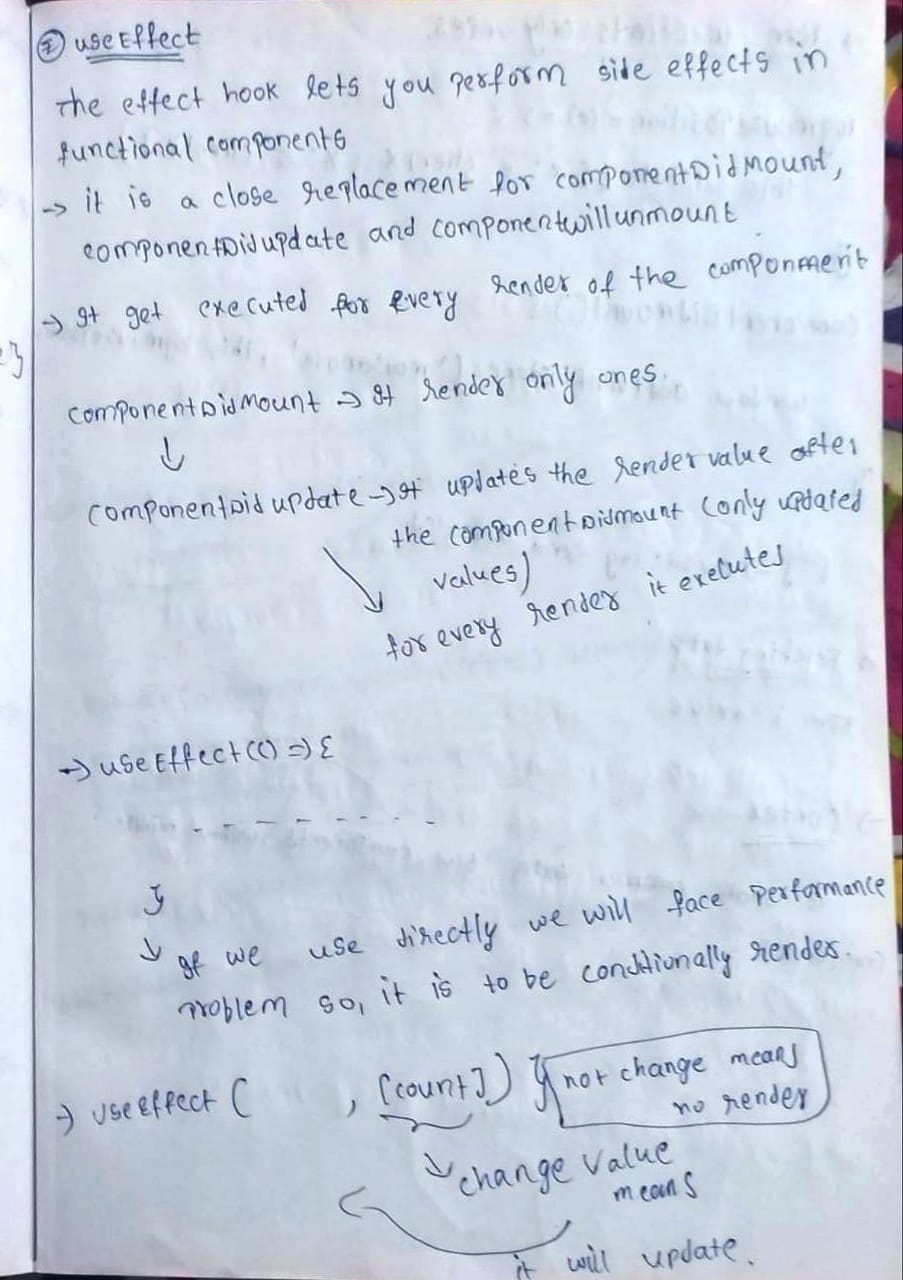 ② useEffect
the effect hook lets you perform side effects in
functional components
→ it is a close replacement for componentDidMount,
componentDidupdate and componentwillunmount
→ It get executed for Every render of the componment
componentDidMount → It render only ones.
↓
componentDid update → It updates the render value after
the componentDidmount (only updated
values)
for every render it executes
→ useEffect(() => {
- - - - - - -
}
↓ If we use directly we will face performance
problem so, it is to be conditionally render.
→ useEffect ( , [count]) } not change means
no render
↓ change value
means
it will update.